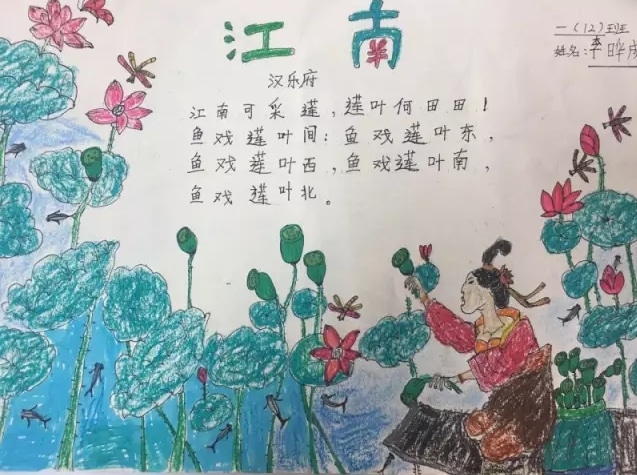 江南
一（12）班
姓名：李晔
汉乐府
江南可采莲，莲叶何田田！
鱼戏莲叶间：鱼戏莲叶东，
鱼戏莲叶西，鱼戏莲叶南，
鱼戏莲叶北。